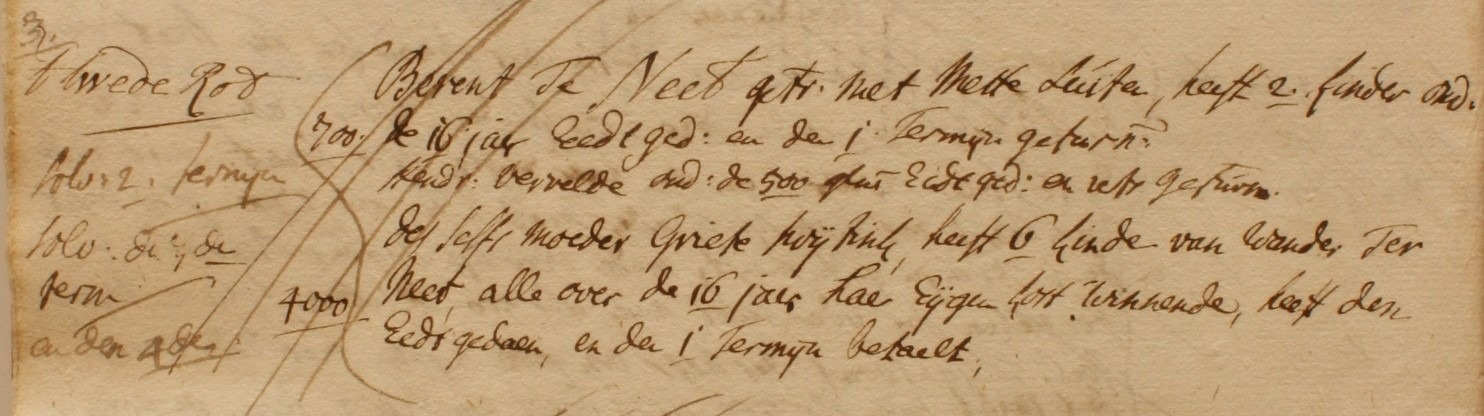 3.
twede Rot
solv: 2. termijn
solv. de 3 de
term
en den 4den
Berent Te Neet getr. met Mette Luiten, heeft 2. kinder ond:
700. de 16 jaer Eedt ged: en den 1. Termijn gefurn:
Hendr: Vervelde ond: de 500 Eedt ged: en
des selfs moeder Griete heeft 6 kinde van Wander Ter
4000 Neet alle over de 16 jaer haer Eijgen kost winnende, heeft den
Eedt gedaen, en den 1 Termijn betaelt,